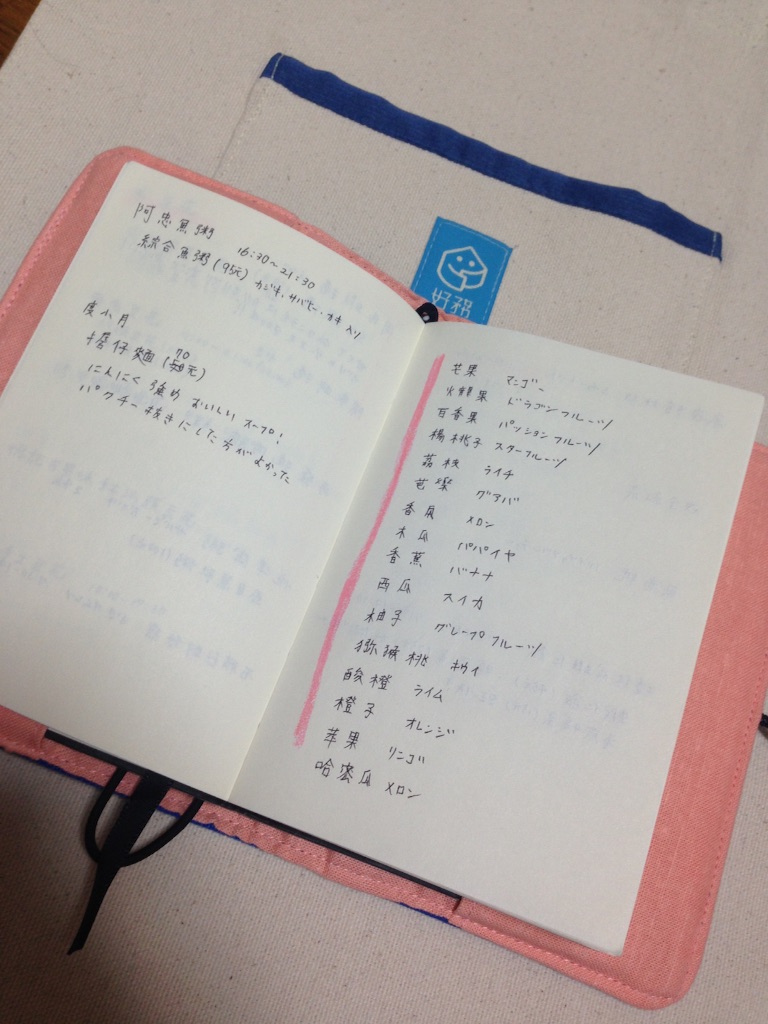 阿忠魚粥
16:30〜21:30
綜合魚粥(95元) カジキ、サバヒー・カキ入り
度小月
担仔麺(70元)
にんにく強め おいしい スープ!
パクチー抜きにした方がよかった
好務
芒果 マンゴー
火龍果 ドラゴンフルーツ
百香果 パッションフルーツ
楊桃子 スターフルーツ
荔枝 ライチ
芭樂 グアバ
香瓜 メロン
木瓜 パパイヤ
香蕉 バナナ
西瓜 スイカ
柚子 グレープフルーツ
獼猴桃 キウイ
酸橙 ライム
橙子 オレンジ
苹果 リンゴ
哈密瓜 メロン